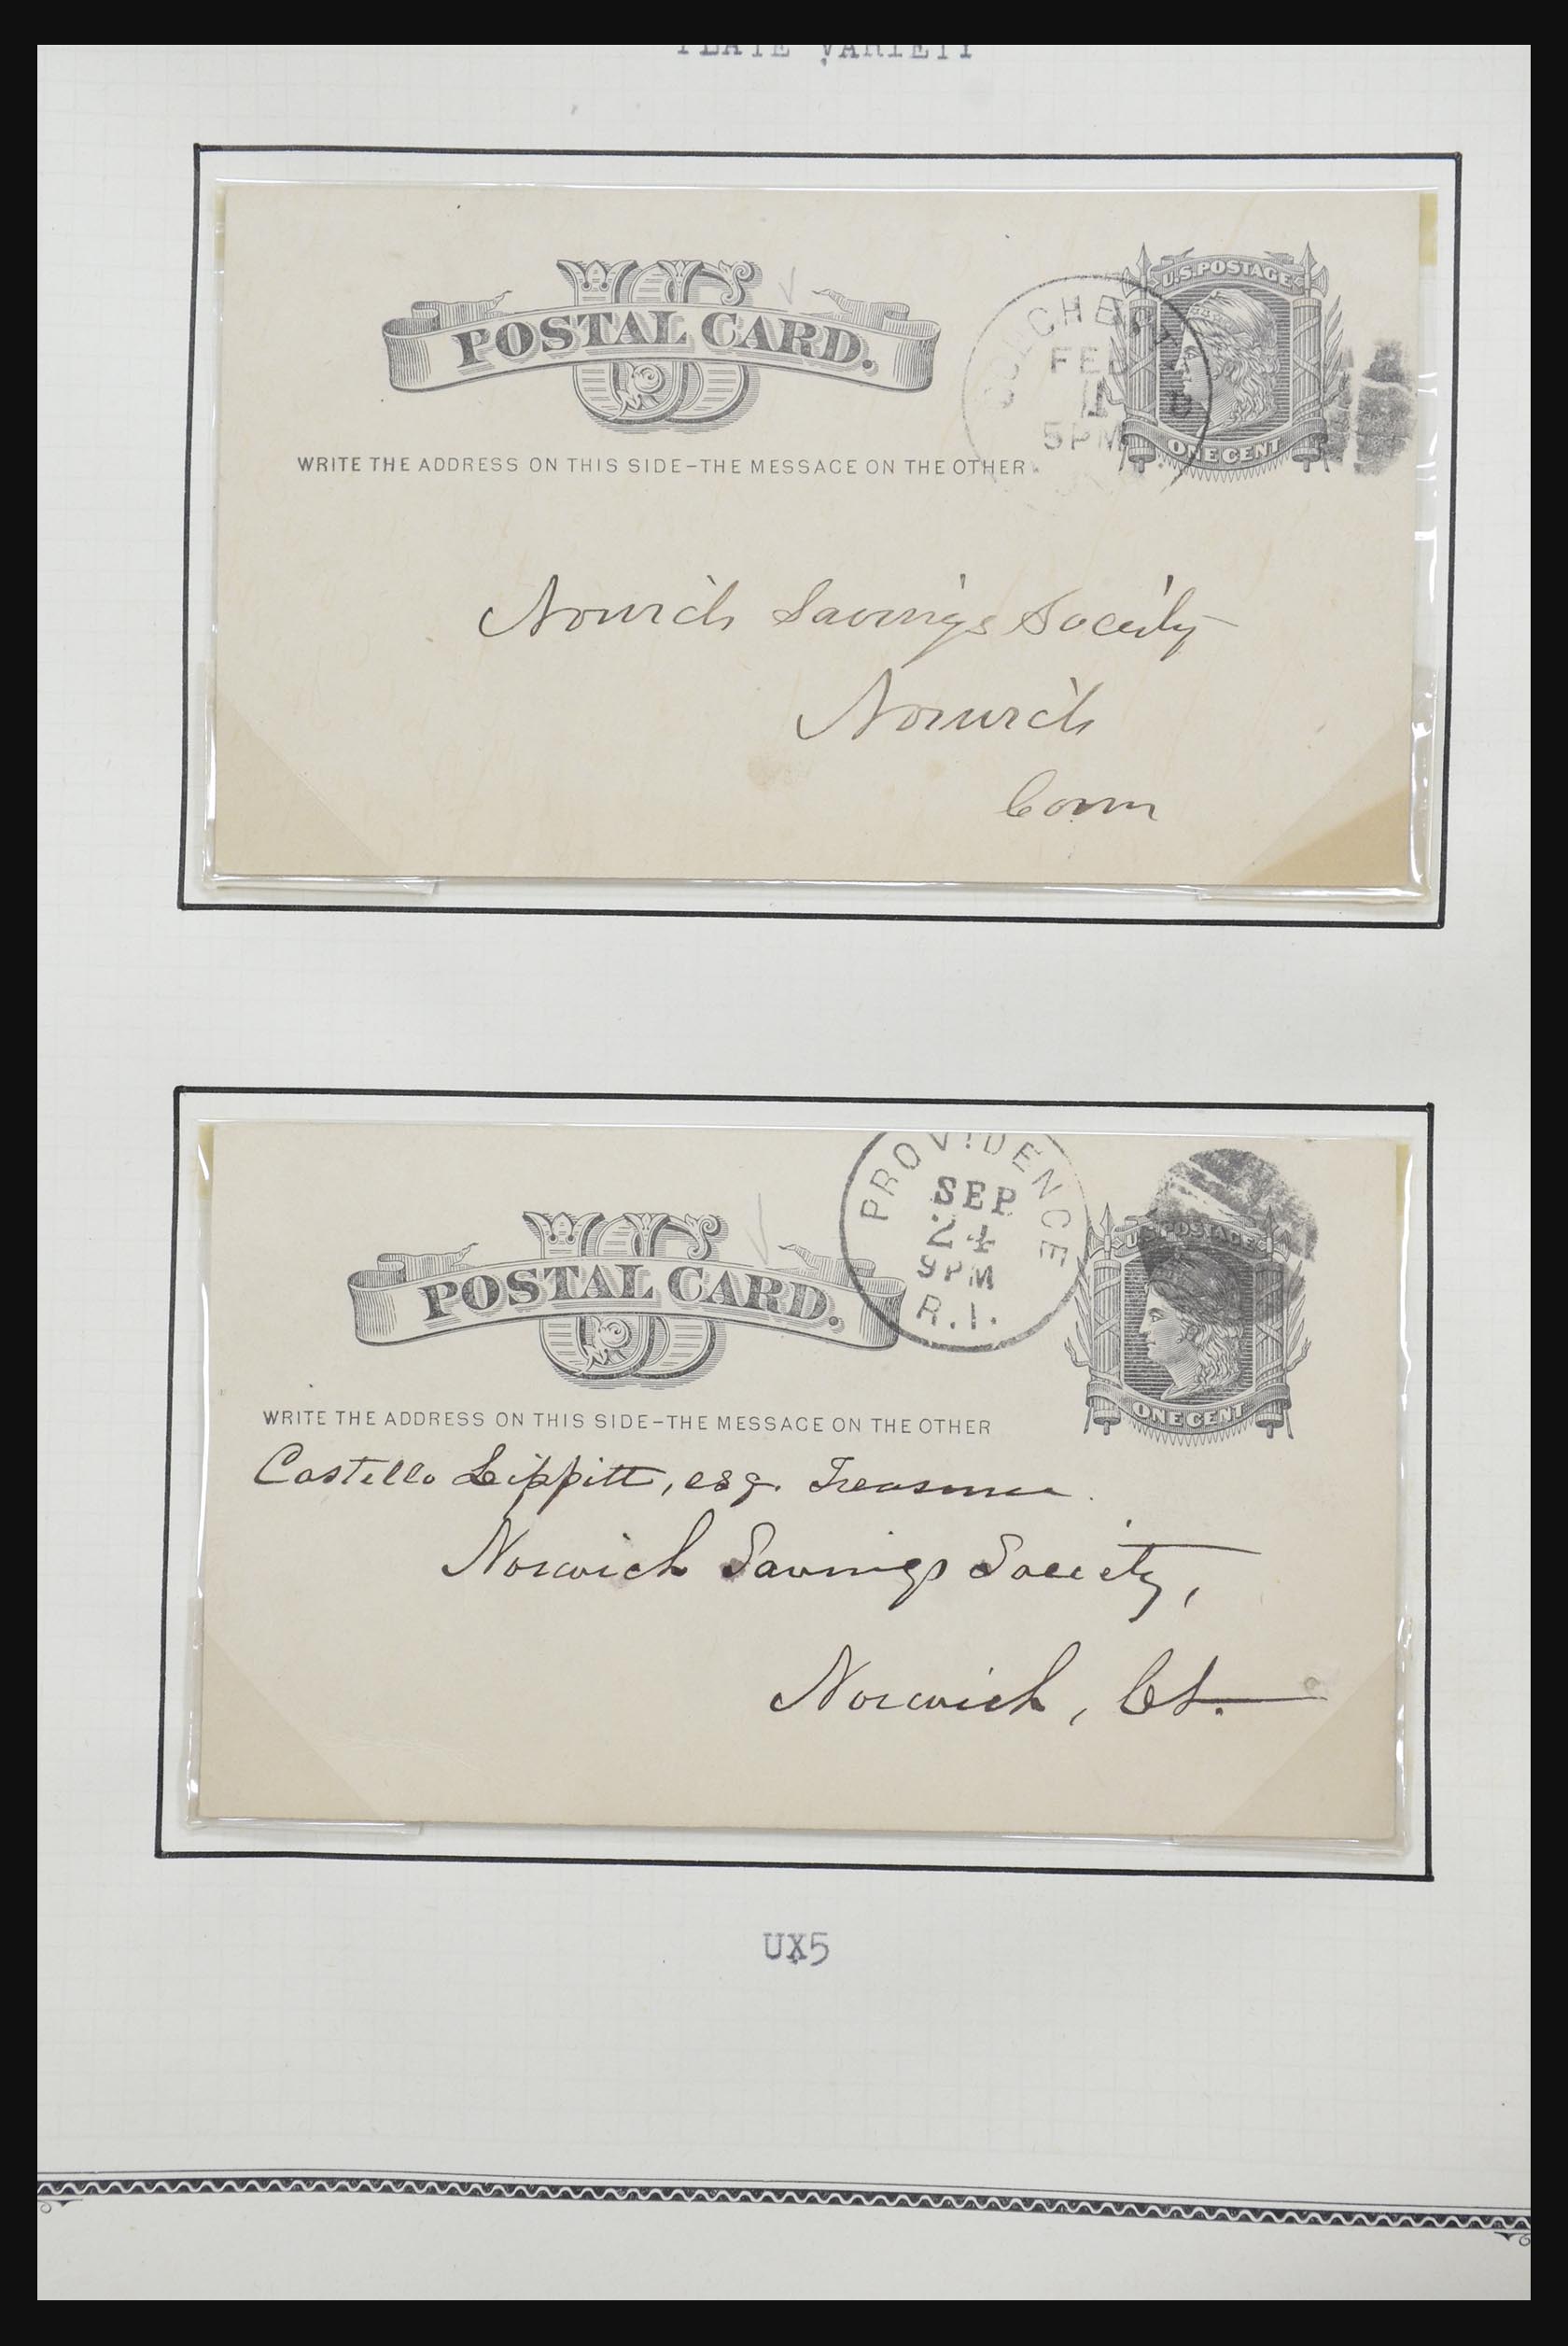 PLATE VARIETY
US
POSTAL CARD.
WRITE THE ADDRESS ON THIS SIDE-THE MESSAGE ON THE OTHER
FEB
5PM
U.S. POSTAGE
ONE CENT
Norwich Savings Society
Norwich
Conn
US
POSTAL CARD.
WRITE THE ADDRESS ON THIS SIDE-THE MESSAGE ON THE OTHER
PROVIDENCE
SEP
24
9PM
R.I.
U.S. POSTAGE
ONE CENT
Costello Lippitt, esq. Treasurer
Norwich Savings Society,
Norwich, Ct.
UX5